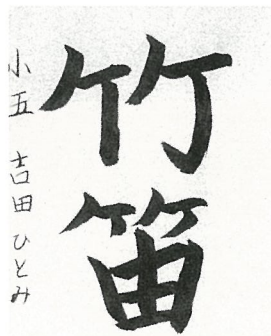 竹笛
小五 吉田ひとみ